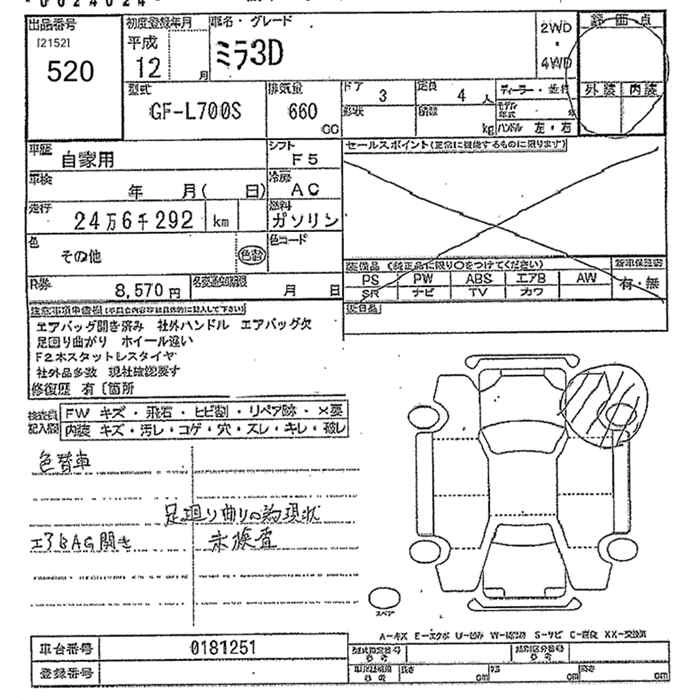 出品番号
[2152]
520
初度登録年月
平成
12 月
車名・グレード
ミラ3D
2WD
・
4WD
評価点
外装 内装
型式
GF-L700S
排気量
660
CC
ドア
3
形状
定員
4 人
積載
kg
ディーラー・並行
モデル年式
ハンドル 左・右
車歴
自家用
シフト
F5
車検
年 月( 日)
冷房
AC
走行
24万6千292 km
燃料
ガソリン
色
その他
色替
色コード
R券
8,570 円
名変期限
月 日
セールスポイント(正常に機能するものに限ります)
装備品 (純正品に限り○をつけてください)
PS PW ABS エアB AW
SR ナビ TV カワ
新車保証書
有・無
後日品
注意事項申告欄
エアバッグ開き済み 社外ハンドル エアバッグ欠
足回り曲がり ホイール違い
F2ホスタットレスタイヤ
社外品多数 現社確認要す
修復歴 有〔箇所
検査員
記入欄
FW キズ・飛石・ヒビ割・リペア跡・×要
内装 キズ・汚レ・コゲ・穴・スレ・キレ・破レ
色替車
足回り曲りの為現状
エアBAG開き
未検査
スペア
A-キズ E-エクボ U-凹み W-補修跡 S-サビ C-腐食 XX-交換済
車台番号
0181251
登録番号
型式指定番号
類別区分番号
長さ cm
巾 cm
高さ cm